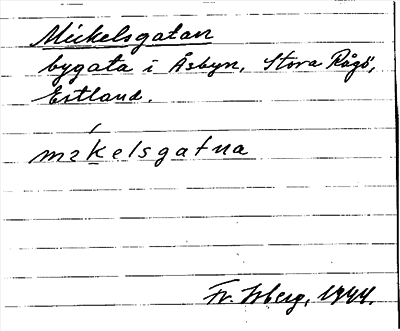 Mickelsgatan
bygata i Åsbyn, Stora Rågö,
Estland.
mɩkelsgatna
Fr. Isberg, 1944.